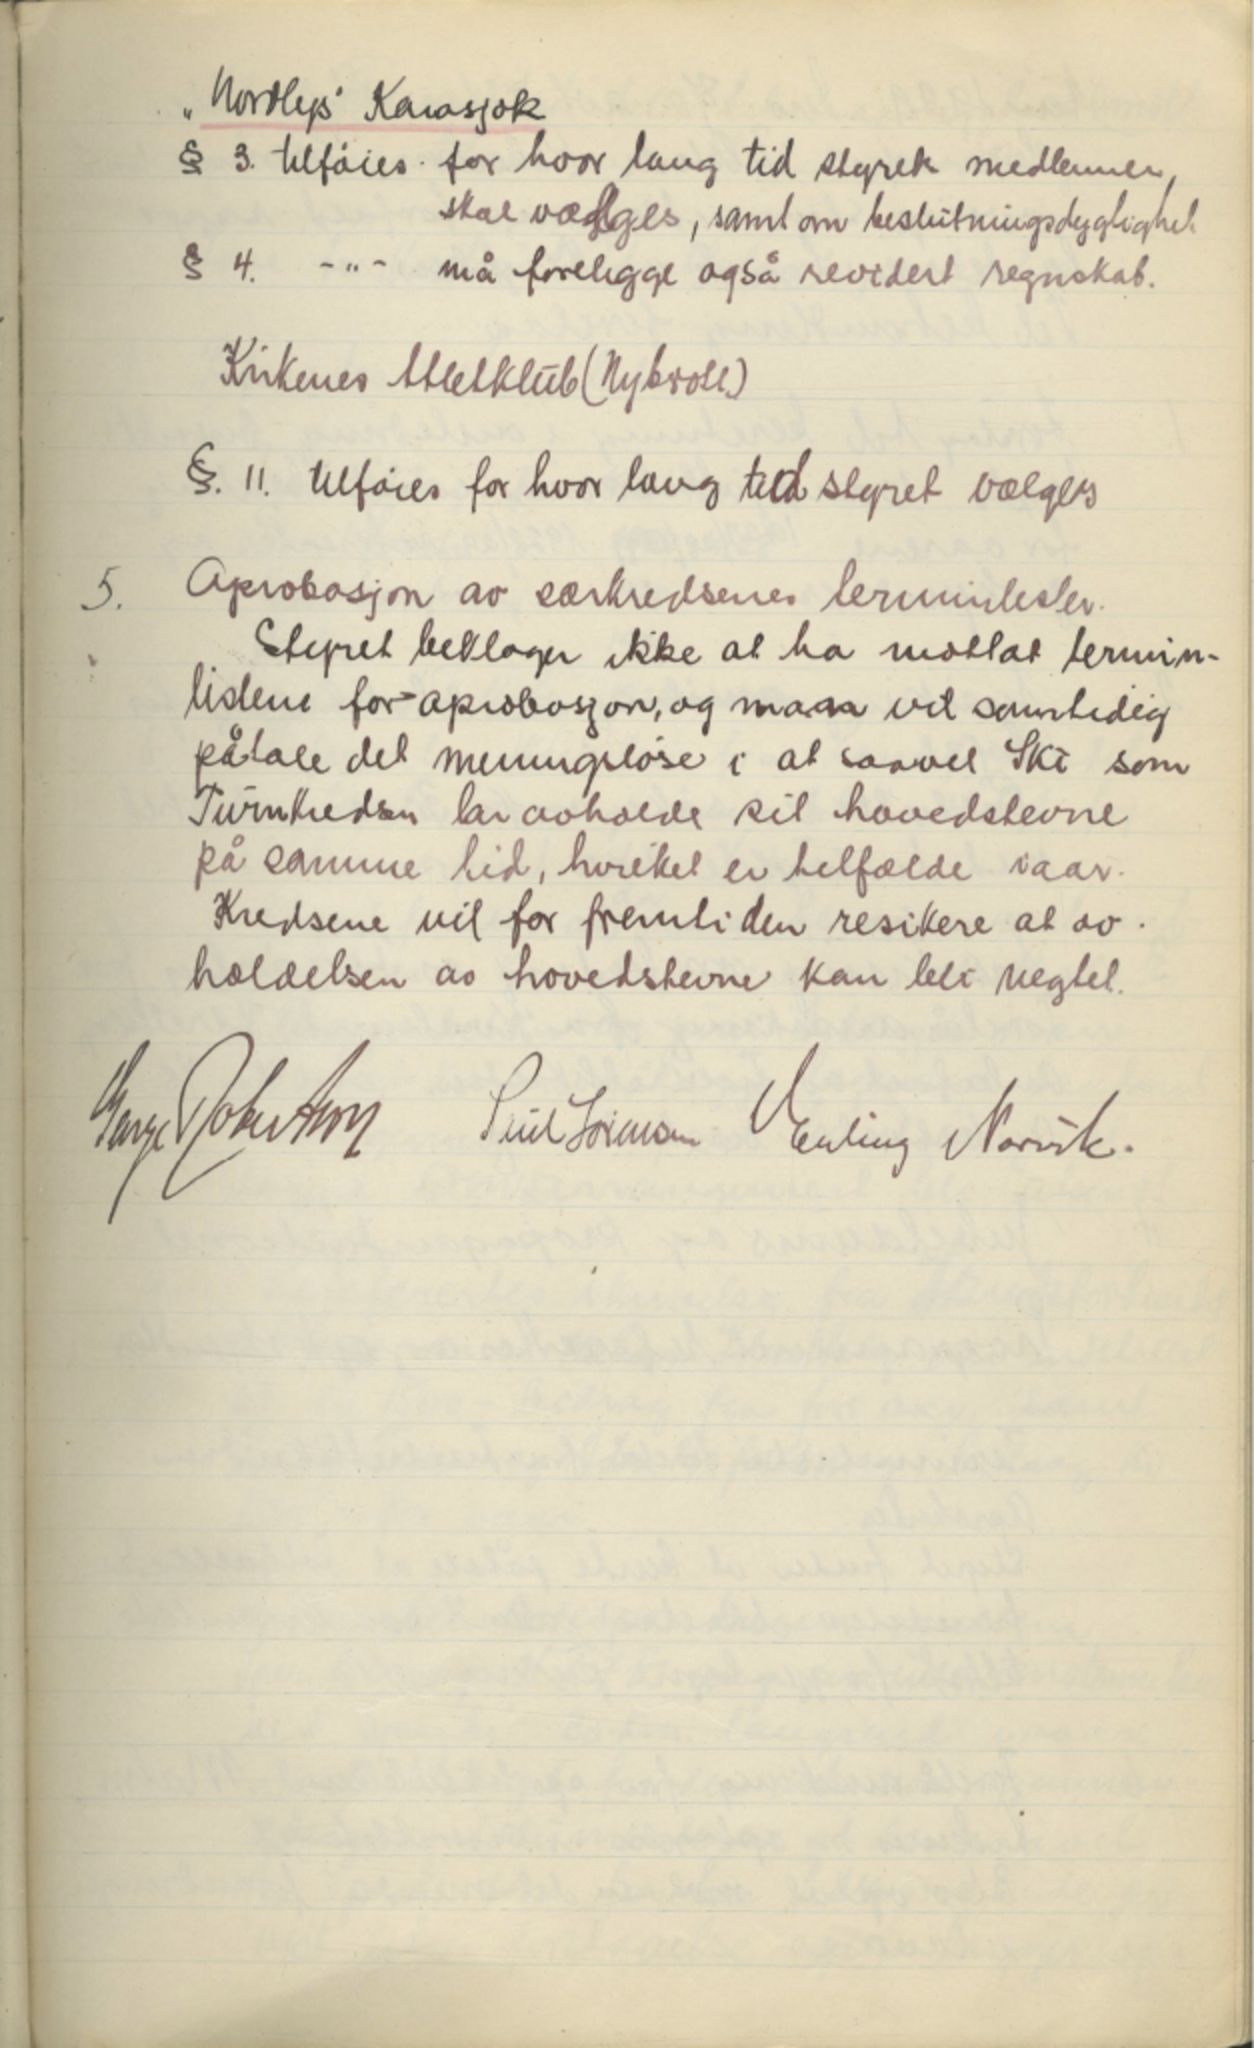 „Nordlys" Karasjok
§ 3. tilføies for hvor lang tid styrets medlemmer,
skal vælges, samt om beslutningsdygtighet
§ 4. -"- må foreligge også revidert regnskab.
Kirkenes Atletklub (Nybrott)
§. 11. tilføies for hvor lang tid styret vælges
5. Aprobasjon av særkredsenes terminlister.
Styret beklager ikke at ha mottat termin-
listene for aprobasjon, og maa vil samtidig
påtale det meningsløse i at saavel Ski som
Turnkredsen lar avholde sit hovedstevne
på samme tid, hvilket er tilfælde iaar.
Kredsene vil for fremtiden resikere at av-
holdelsen av hovedstevne kan bli negtet.
George Robertson Erling Norvik.